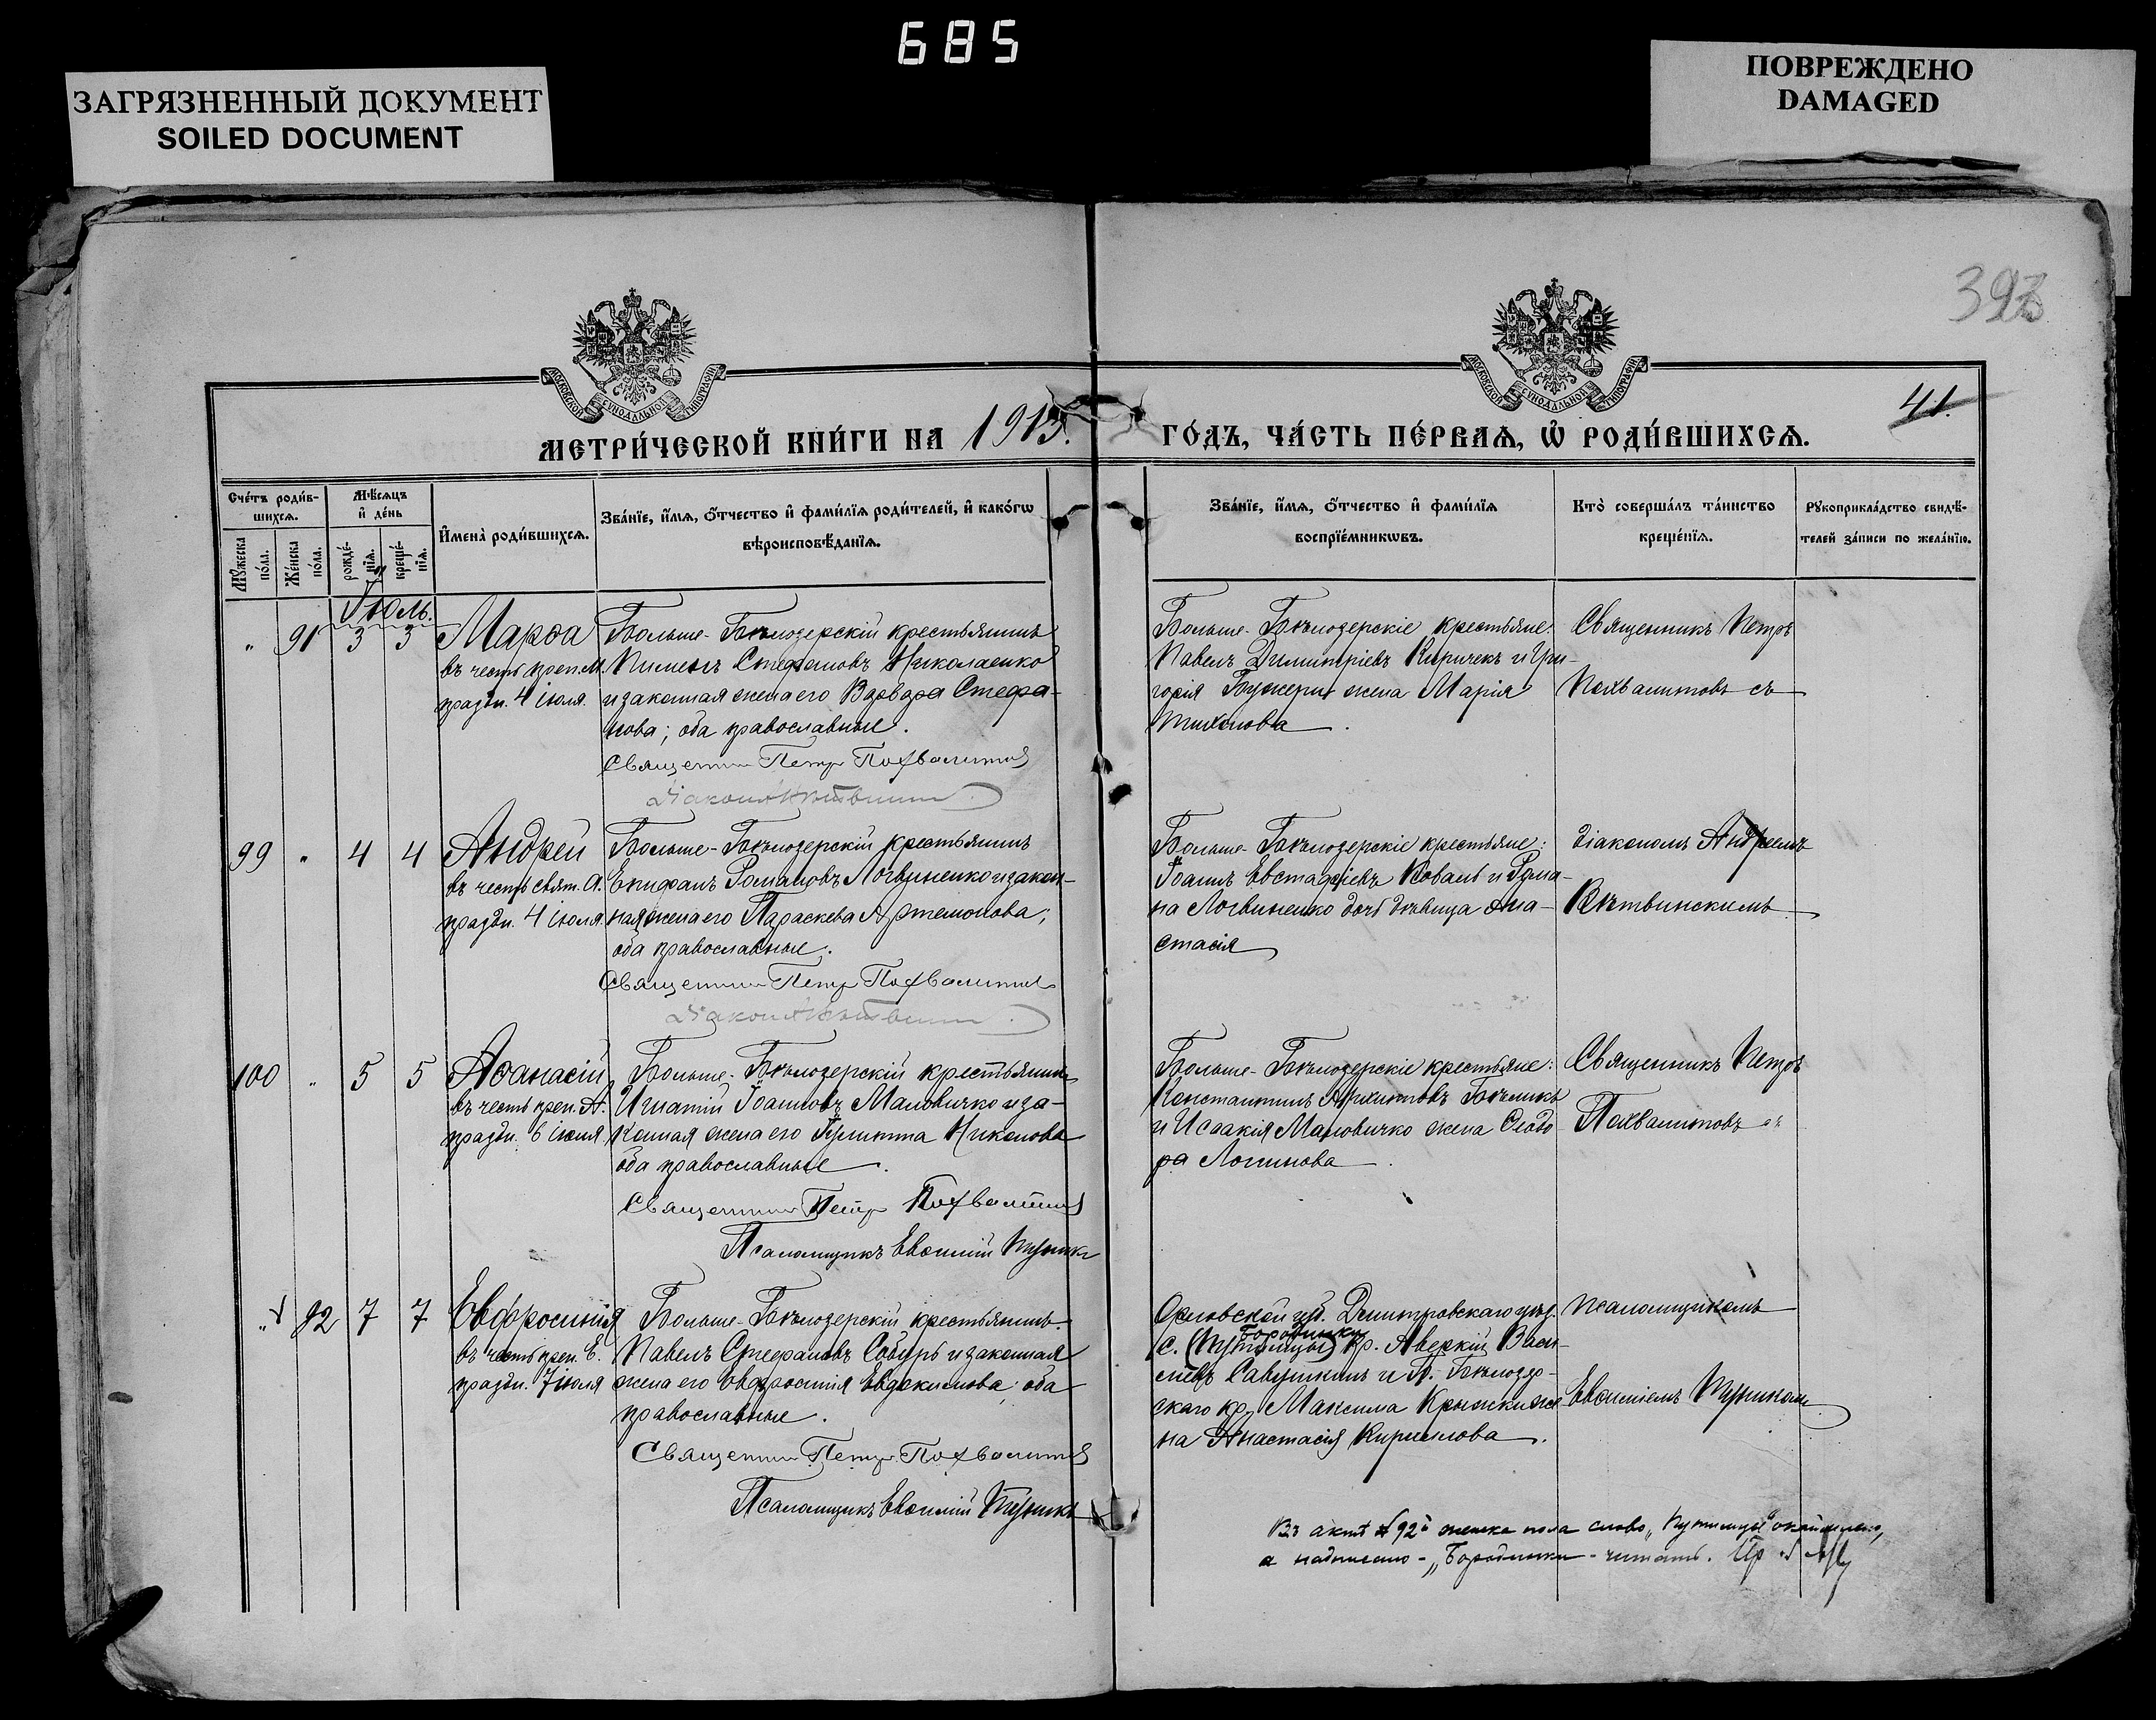 685
ЗАГРЯЗНЕННЫЙ ДОКУМЕНТ
SOILED DOCUMENT
ПОВРЕЖДЕНО
DAMAGED
МОСКОВСКОЙ СѴНОДАЛЬНОЙ ТИПОГРАФІИ
МОСКОВСКОЙ СѴНОДАЛЬНОЙ ТИПОГРАФІИ
41.
МЕТРИ́ЧЕСКОЙ КНИ́ГИ НА 1913.
ГО́ДЪ, ЧА́СТЬ ПЕ́РВАѦ, Ѿ РОДИ́ВШИХСѦ.
Сче́тъ роди́в-
шихсѧ.
Мѣ́сѧцъ
и҆ де́нь
Мꙋ́жеска
по́ла.
Же́нска
по́ла.
рожде́-
нїѧ.
креще́-
нїѧ.
И҆мена̀ роди́вшихсѧ.
Зва́нїе, и҆́мѧ, ѻ҆́тчество и҆ фами́лїѧ роди́телей, и҆ како́гѡ
вѣроисповѣ́данїѧ.
Зва́нїе, и҆́мѧ, ѻ҆́тчество и҆ фами́лїѧ
воспрїе́мникѡвъ.
Кто̀ соверша́лъ та́инство
креще́нїѧ.
Рꙋкоприкла́дство свидѣ́-
телей за́писи по жела́нїю.
Іюль.
" 91 3 3 Марѳа
въ честь преп. М.
праздн. 4 іюля.
Больше-Бѣлозерскій крестьянинъ
Пименъ Стефановъ Николаенко
и законная жена его Варвара Стефа-
нова; оба православные.
Священник Петр Похвалитов
Діаконъ Вѣтвинск
Больше-Бѣлозерскіе крестьяне:
Павелъ Димитріевъ Киричекъ и Гри-
горія жена Марія
Тихонова.
Священникъ Петръ
Похвалитовъ съ
99 " 4 4 Андрей
въ честь свят. А.
праздн. 4 іюля.
Больше-Бѣлозерскій крестьянинъ
Епифанъ Романовъ Логвиненко и закон-
ная жена его Параскева Артемонова;
оба православные.
Священник Петр Похвалитов
Діаконъ Вѣтвинск
Больше-Бѣлозерскіе крестьяне:
Іоаннъ Евстафіевъ Коваль и Рома-
на Логвиненко дочь дѣвица Ана-
стасія
Діакономъ Андреемъ
Вѣтвинскимъ
100 " 5 5 Аѳанасій
въ честь преп. А.
праздн. 6 іюля
Больше-Бѣлозерскій крестьянинъ
Игнатій Іоанновъ Маловичко и за-
конная жена его Іулитта Никонова
оба православные.
Священник Петр Похвалитов
Псаломщикъ Евѳимій
Больше-Бѣлозерскіе крестьяне:
Константинъ Бѣликъ
и Исаакія Маловичко жена Ѳеодо
ра Логинова.
Священникъ Петръ
Похвалитовъ съ
" 92 7 7 Евфросинія
въ честь преп. Е.
праздн. 7 іюля
Больше-Бѣлозерскій крестьянинъ
Павелъ Стефановъ Собурь и законная
жена его Евфросинія Евдокимова; оба
православные.
Священник Петр Похвалитов
Псаломщикъ Евѳимій
Орловской губ. Димитровскаго уѣзд.
Бородинки
с. (Путимцы) кр. Аверкій Васи-
льевъ Савушкинъ и Б. Бѣлозер-
скаго кр. Максима же
на Анастасія Кириллова.
Псаломщикомъ
Евѳиміемъ
Въ актѣ № 92й женска пола слово „Путимцы"
а надписано - „Бородинки - читать.